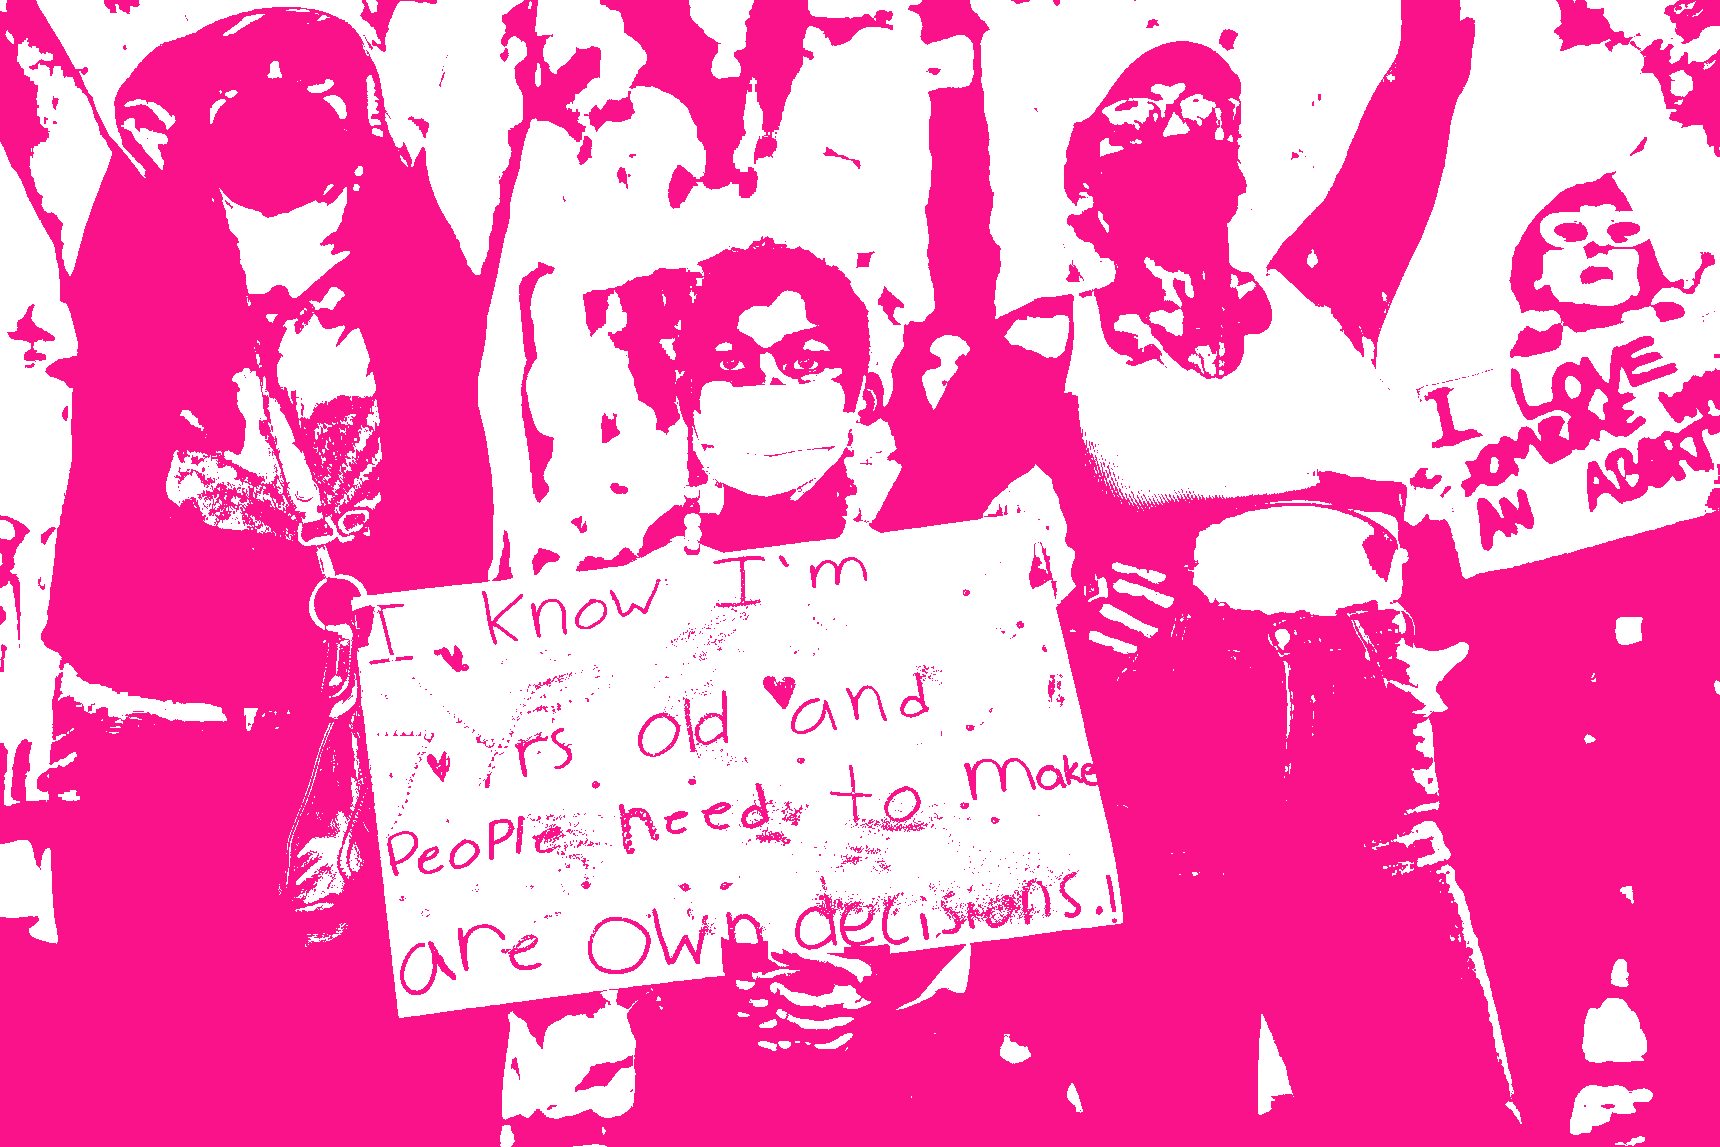 I know I'm
7 Yrs old and
People need to make
are own decisions.!
I LOVE
SOMEONE
AN ABORT